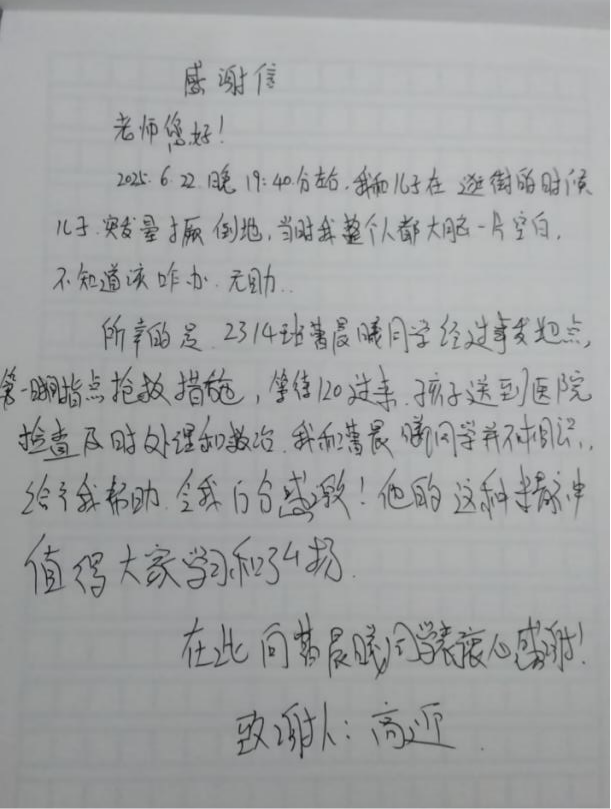 感谢信
老师您好!
2025.6.22.晚 19:40分左右,我和儿子在 逛街的时候
儿子.突发晕厥倒地,当时我整个人都大脑一片空白,
不知道该咋办.无助..
所幸的是.2314班萧晨曦同学经过事发地点,
第一时间指点抢救措施,等待120过来.孩子送到医院
检查及时处理和救治.我和萧晨曦同学并不相识,
给予我帮助.令我万分感激!他的这种精神
值得大家学习和弘扬.
在此向萧晨曦同学表衷心感谢!
致谢人:高迎